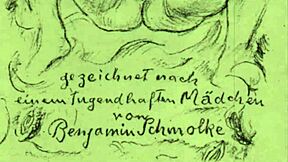 gezeichnet nach
einem tugendhaften Mädchen
von
Benjamin Schmolke